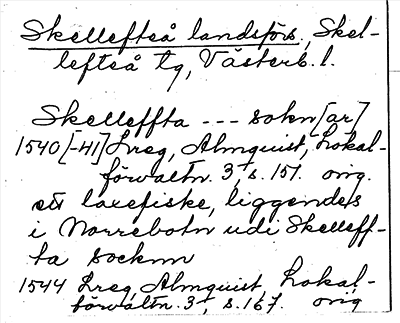 Skellefteå landsförs., Skel-
lefteå tg, Västerb. l.
Skelleffta --- sokn[ar]
1540[-41] Lreg, Almquist, Lokal-
förvaltn. 3, s. 157. orig.
ett laxefiske, liggendes
i Norrebotn udi Skelleff-
ta socknn
1544 Lreg Almquist, Lokal-
förvaltn. 3, s. 167. orig